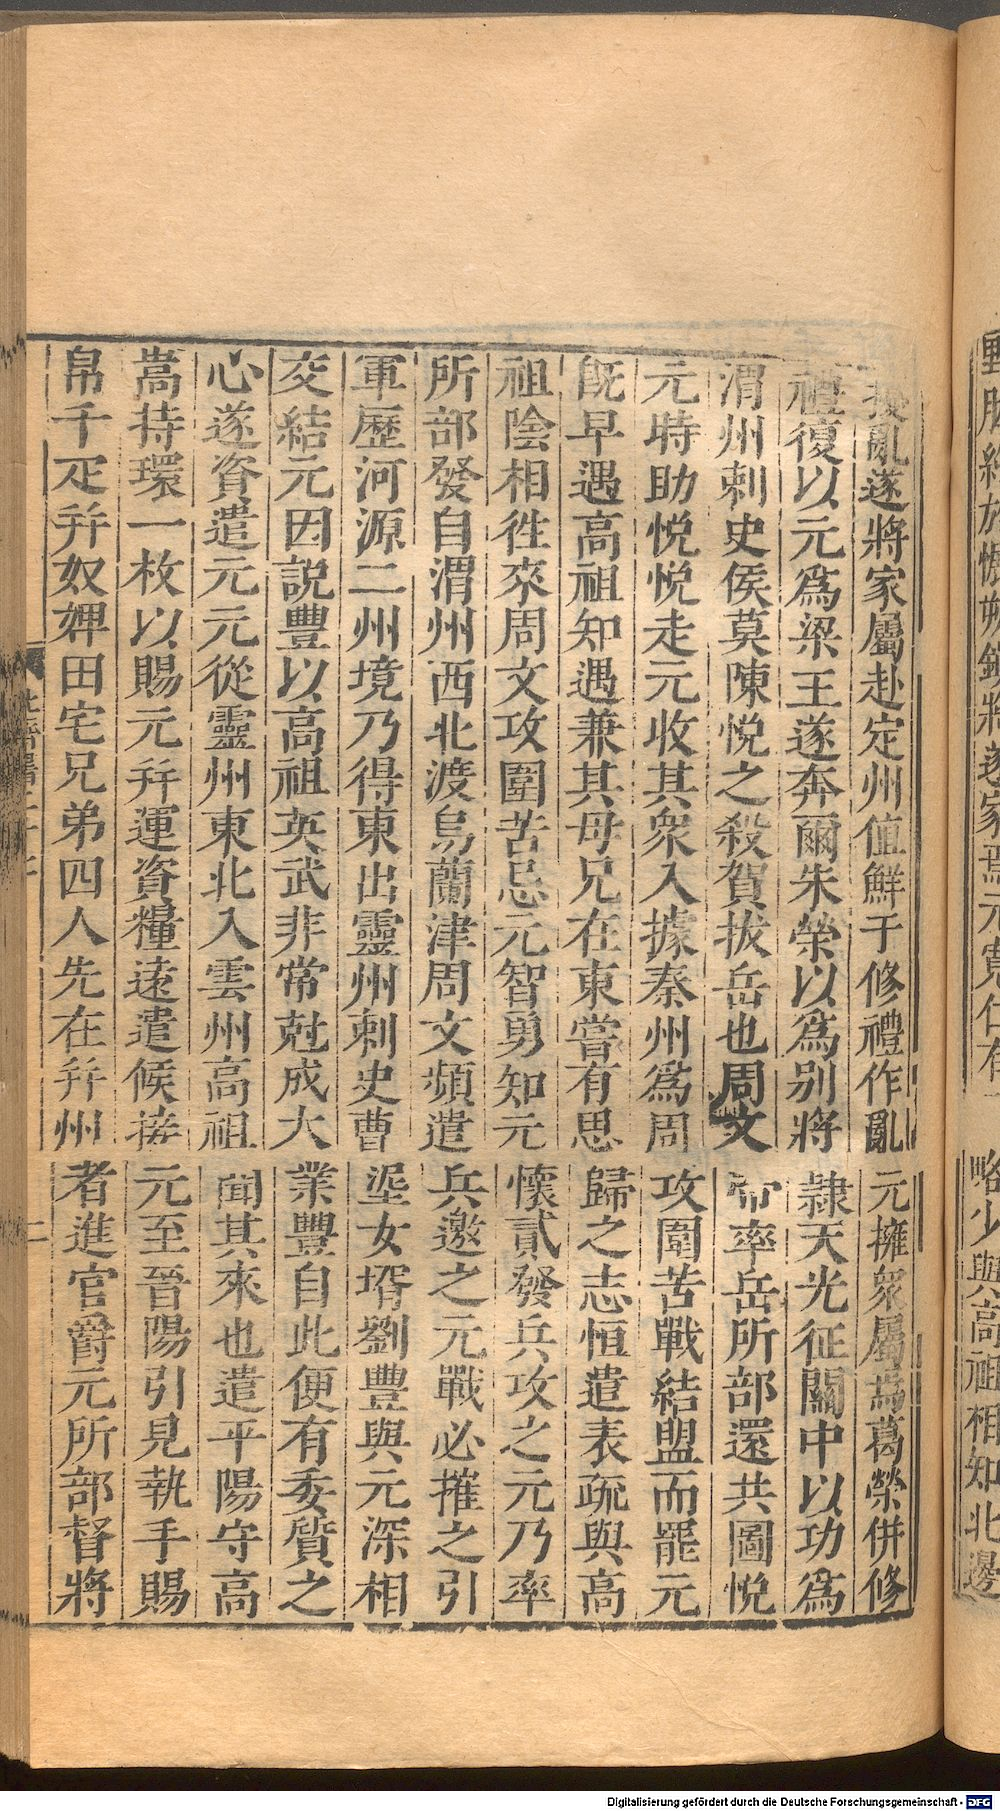 擾亂遂將家屬赴定州值鮮于修禮作亂元擁衆屬焉葛榮併修
禮復以元爲梁王遂奔爾朱榮以爲別將隸天光征關中以功爲
渭州刺史侯莫陳悅之殺賀拔岳也周文帝率岳所部還共圖悅
元時助悅悅走元收其衆入據秦州爲周攻圍苦戰結盟而罷元
旣早遇高祖知遇兼其母兄在東嘗有思歸之志恒遣表疏與高
祖陰相徃來周文攻圍苦忌元智勇知元懷貳發兵攻之元乃率
所部發自渭州西北渡烏蘭津周文頻遣兵邀之元戰必摧之引
軍歷河源二州境乃得東出靈州刺史曹埿女壻劉豐與元深相
交結元因說豐以高祖英武非常尅成大業豐自此便有委質之
心遂資遣元元從靈州東北入雲州高祖聞其來也遣平陽守高
嵩持環一枚以賜元并運資糧遠遣候接元至晉陽引見執手賜
帛千疋并奴婢田宅兄弟四人先在并州者進官爵元所部督將
二
略少與高祖相知北邊
Digitalisierung gefördert durch die Deutsche Forschungsgemeinschaft - DFG